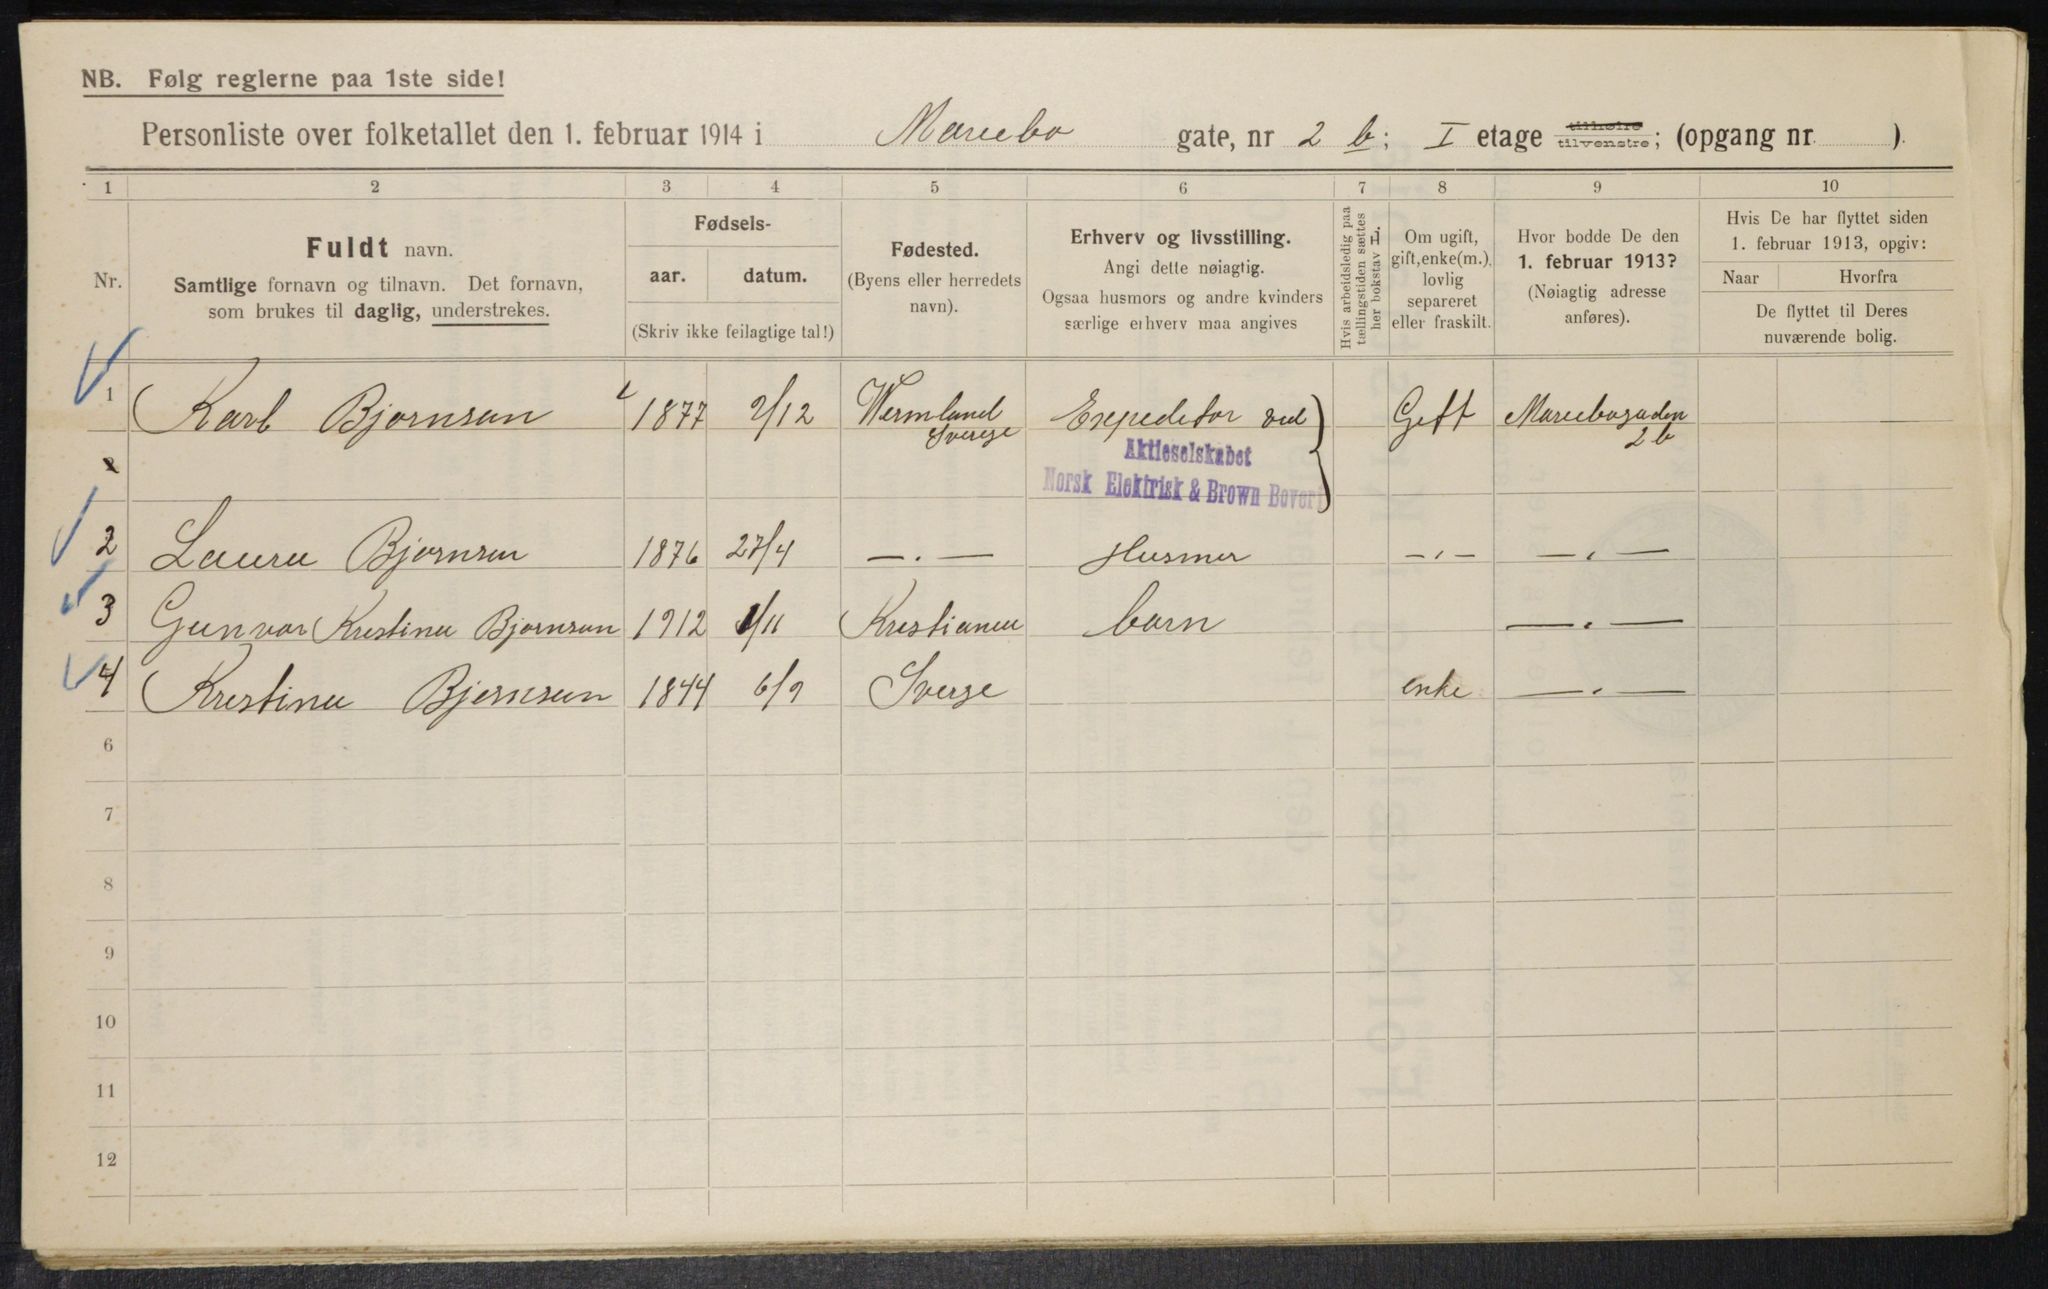 NB. Følg reglerne paa 1ste side!
Personliste over folketallet den 1. februar 1914 i Mareebo gate, nr 2 b; I etage tilhøire tilvenstre; (opgang nr. ).
1 2 3 4 5 6 7 8 9 10
Nr.
Fuldt navn.
Samtlige fornavn og tilnavn. Det fornavn,
som brukes til daglig, understrekes.
Fødsels-
aar. datum.
(Skriv ikke feilagtige tal!)
Fødested.
(Byens eller herredets
navn).
Erhverv og livsstilling.
Angi dette nøiagtig.
Ogsaa husmors og andre kvinders
særlige erhverv maa angives
Hvis arbeidsledig paa
tællingstiden sættes
her bokstav L.
Om ugift,
gift, enke(m.),
lovlig
separeret
eller fraskilt.
Hvor bodde De den
1. februar 1913?
(Nøiagtig adresse
anføres).
Hvis De har flyttet siden
1. februar 1913, opgiv:
Naar Hvorfra
De flyttet til Deres
nuværende bolig.
1 Karl Bjornsen 1877 9/12 Wermland Expeditor ved Gift Mareebogaden
Sverge 2 b
2 Aktieselskabet
Norsk Elektrisk & Brown Boveri
2 Laura Bjornsen 1876 27/4 — . — Husmor — . — — . —
3 Gunvor Kristina Bjornsen 1912 1/11 Kristiania barn — . —
4 Kristina Bjornsen 1844 6/9 Sverge enke — . —
6
7
8
9
10
11
12